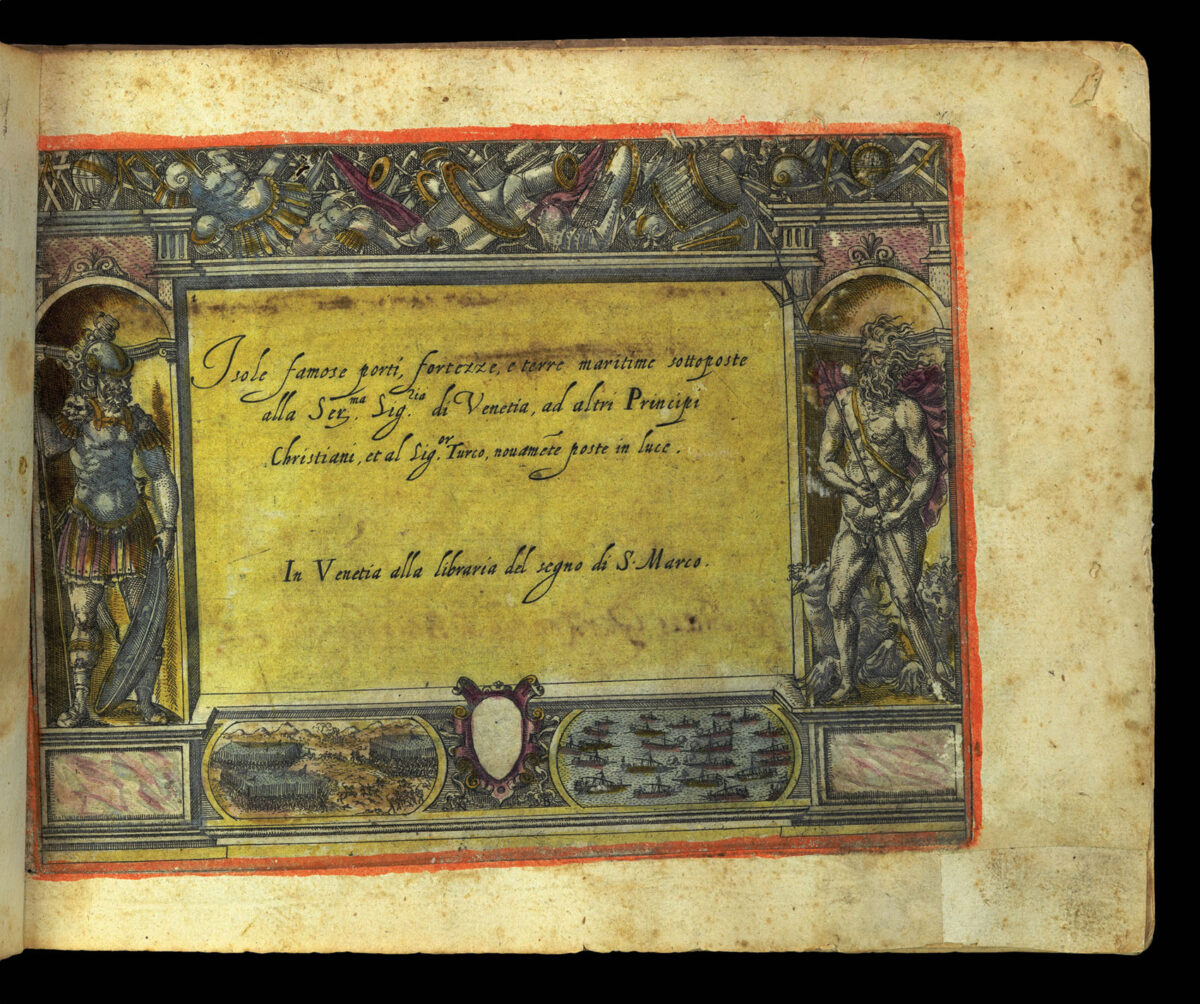 Isole famose porti, fortezze, e terre maritime sottoposte
alla Ser.ma Sig.ria di Venetia, ad altri Principi
Christiani, et al Sig.or Turco, novamẽte poste in luce.
In Venetia alla libraria del segno di S. Marco.